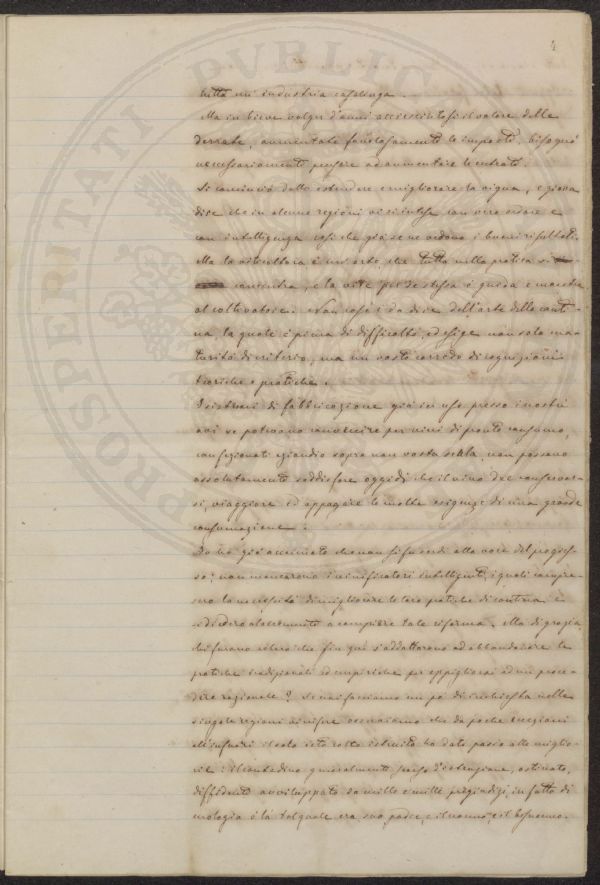 4
tutta un' industria casalinga.
Ma in breve volger d'anni accresciutosi il valore delle
derrate, aumentate favolosamente le imposte, bisognò
necessariamente pensare ad aumentare le entrate.
Si cominciò dallo estendere e migliorare la vigna, e giova
dire che in alcune regioni vi si intese con vero ardore e
con intelligenza così che già se ne vedono i buoni risultati.
Ma la viticoltura è un'arte, che tutta nella pratica si
concentra, e la vite per se stessa è guida e maestra
al coltivatore. Non così è da dire dell'arte della canti-
na, la quale è piena di difficoltà, ed esige non solo ma-
turità di criterio, ma un vasto corredo di cognizioni
teoriche e pratiche.
I sistemi di fabbricazione già in uso presso i nostri
avi se potevano convenire per vini di pronto consumo,
confezionati eziandio sopra non vasta scala, non possono
assolutamente soddisfare oggidì che il vino dee conservar-
si, viaggiare ed appagare le molte esigenze di una grande
consumazione.
Io ho già accennato che non si fu sordi alla voce del progres-
so; non mancarono i vinificatori intelligenti, i quali compre-
sero la necessità di migliorare le loro pratiche di cantina e
si diedero alacremente a compiere tale riforma. Ma di grazia
chi furono coloro che fin qui s'addattarono ad abbandonare le
pratiche tradizionali ed empiriche per appigliarsi ad un proce-
dere razionale? Se noi facciamo un pò di inchiesta nelle
singole regioni vinifere veniamo che da poche eccezioni
all'infuori il solo ceto colto istruito ha dato passo alle miglio-
rie: il contadino generalmente, scarso d'istruzione, ostinato,
diffidente avviluppato da mille e mille pregiudizi, in fatto di
enologia è là tal quale era suo padre, e il nonno, e il bisnonno.
PROSPERITATI PVBLIC